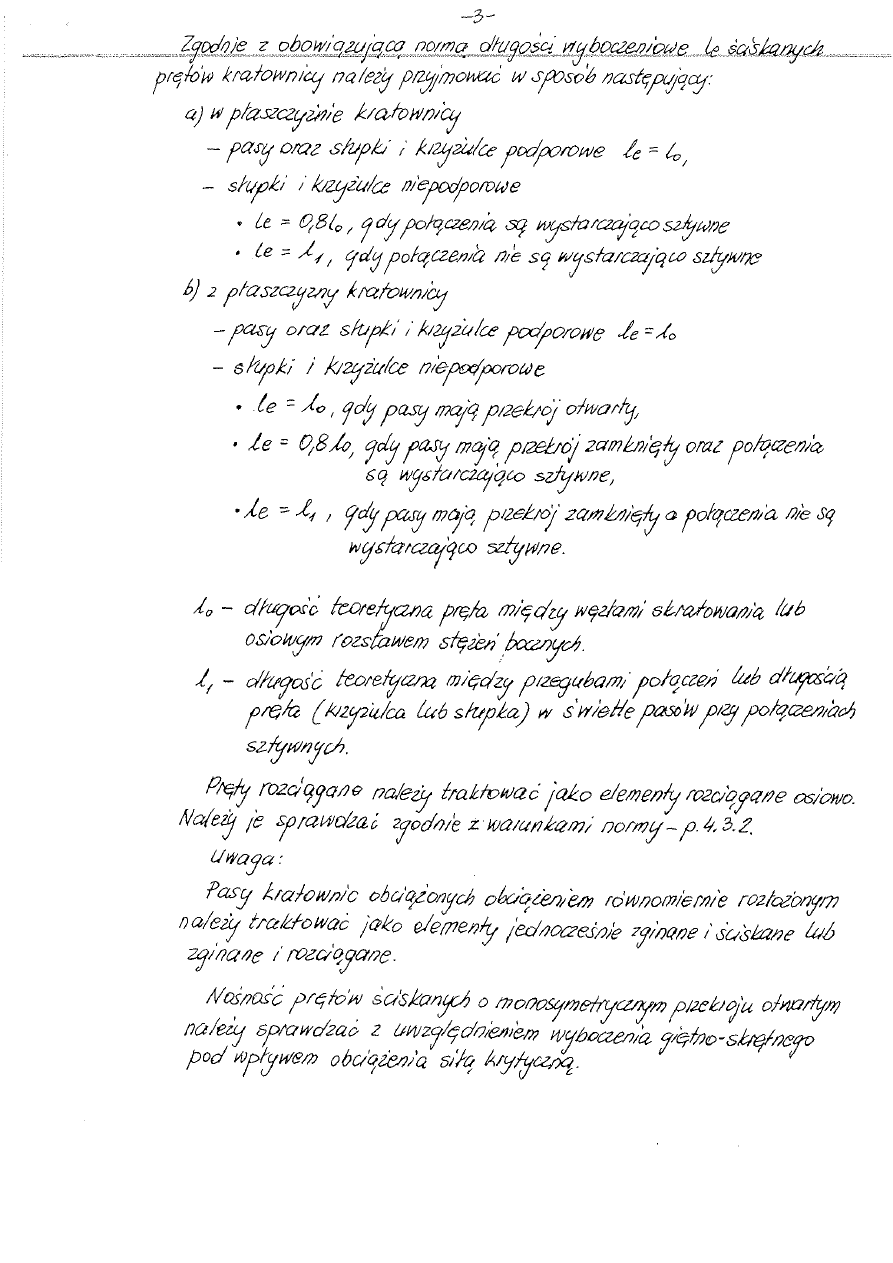 -3-
Zgodnie z obowiązującą normą długości wyboczeniowe le ściskanych
prętów kratownicy należy przyjmować w sposób następujący:
a) w płaszczyźnie kratownicy
- pasy oraz słupki i krzyżulce podporowe le = l₀,
- słupki i krzyżulce niepodporowe
• le = 0,8l₀, gdy połączenia są wystarczająco sztywne
• le = l₁, gdy połączenia nie są wystarczająco sztywne
b) z płaszczyzny kratownicy
- pasy oraz słupki i krzyżulce podporowe le = l₀
- słupki i krzyżulce niepodporowe
• le = l₀, gdy pasy mają przekrój otwarty,
• le = 0,8l₀, gdy pasy mają przekrój zamknięty oraz połączenia
są wystarczająco sztywne,
• le = l₁, gdy pasy mają przekrój zamknięty a połączenia nie są
wystarczająco sztywne.
l₀ - długość teoretyczna pręta między węzłami skratowania lub
osiowym rozstawem stężeń bocznych.
l₁ - długość teoretyczna między przegubami połączeń lub długością
pręta (krzyżulca lub słupka) w świetle pasów przy połączeniach
sztywnych.
Pręty rozciągane należy traktować jako elementy rozciągane osiowo.
Należy je sprawdzać zgodnie z warunkami normy - p.4.3.2.
Uwaga:
Pasy kratownic obciążonych obciążeniem równomiernie rozłożonym
należy traktować jako elementy jednocześnie zginane i ściskane lub
zginane i rozciągane.
Nośność prętów ściskanych o monosymetrycznym przekroju otwartym
należy sprawdzać z uwzględnieniem wyboczenia giętno-skrętnego
pod wpływem obciążenia siłą krytyczną.